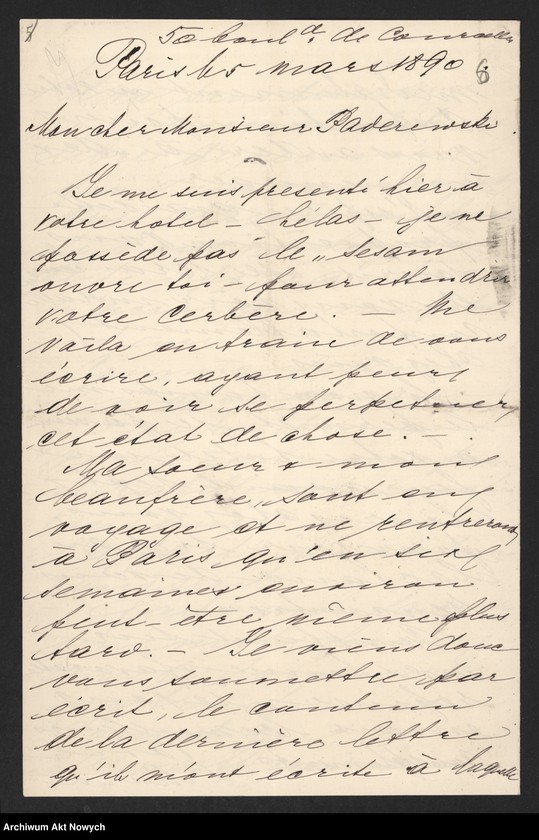 5)
50 boul d. de Courcelles
Paris le 5 mars 1890
6
Mon cher Monsieur Paderewski.
Je me suis presenté hier à
votre hotel – hélas – je ne
possède pas le „sesam
ouvre toi" pour attendrir
votre Cerbère. – Me
voila en train de vous
écrire, ayant peur
de voir se perpetuer
cet état de chose. –
Ma soeur & mon
beaufrère, sont en
voyage et ne rentreront
à Paris qu'en six
semaines environ
peut-être même plus
tard. – Je viens donc
vous soumettre par
écrit, le contenu
de la dernière lettre
qu'ils m'ont écrite à laquelle
Archiwum Akt Nowych